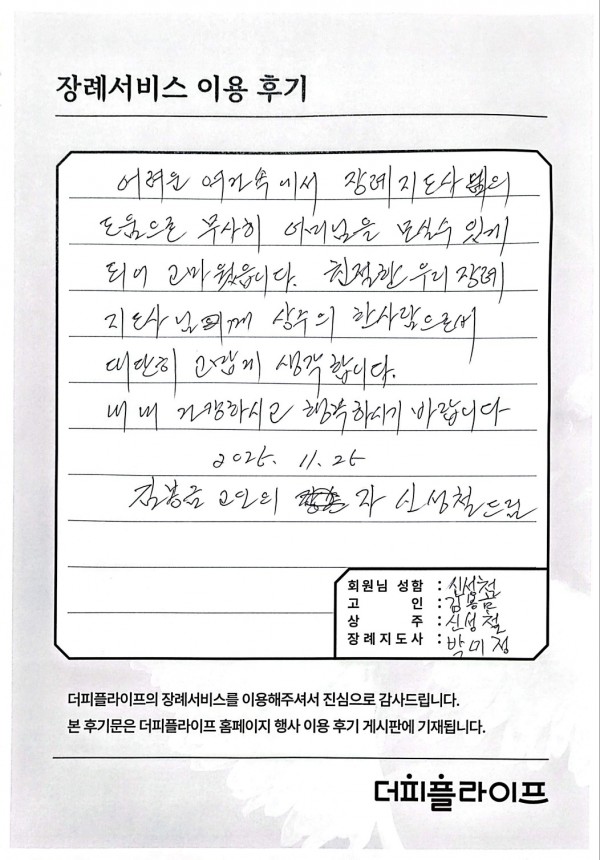 장례서비스 이용 후기
어려운 여건속에서 장례지도사님의
도움으로 무사히 어머님을 모실수 있게
되어 고마웠읍니다. 친절한 우리 장례
지도사님께 상주의 한사람으로써
대단히 고맙게 생각합니다.
내내 건강하시고 행복하시기 바랍니다
2025. 11. 25
김봉금 고인의 자 신성철드림
회원님 성함 : 신성철
고 인 : 김봉금
상 주 : 신성철
장례지도사 : 박미정
더피플라이프의 장례서비스를 이용해주셔서 진심으로 감사드립니다.
본 후기문은 더피플라이프 홈페이지 행사 이용 후기 게시판에 기재됩니다.
더피플라이프